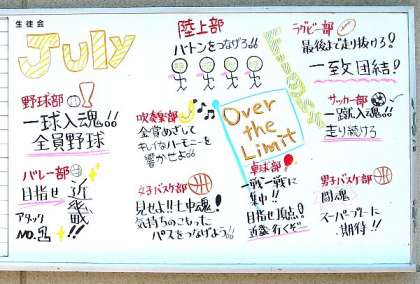 生徒会
July
陸上部
バトンをつなげろ!!
ラグビー部
最後まで走り抜けろ!
一致団結!
野球部
一球入魂!!
全員野球
吹奏楽部
金賞めざして
キレイなハーモニーを
響かせよ!!
Over
the
Limit
サッカー部
一蹴入魂!!
走り続けろ
バレー部
目指せ近畿
アタック
NO.1!!
女子バスケ部
見せよ!!七中魂!
気持ちのこもった
パスをつなげよう!!
卓球部
一戦一戦に
集中!!
目指せ頂点!
近畿行くぞー
男子バスケ部
闘魂
スーパープレーに
期待!!